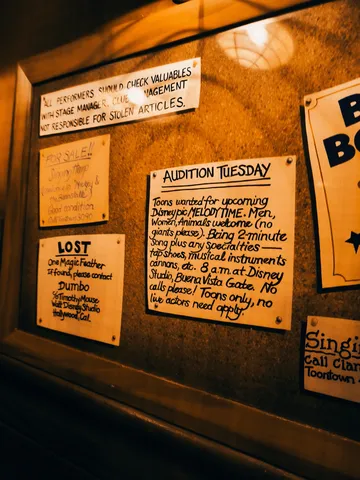 ALL PERFORMERS SHOULD CHECK VALUABLES
WITH STAGE MANAGER, CLUB MANAGEMENT
NOT RESPONSIBLE FOR STOLEN ARTICLES.
FOR SALE!!
Good condition
LOST
One Magic Feather
If found, please contact
Dumbo
c/o Timothy Mouse
Walt Disney Studio
Hollywood, Cal.
AUDITION TUESDAY
Toons wanted for upcoming
Disney pic MELODY TIME. Men,
Women, Animals welcome (no
giants please). Bring 2-minute
song plus any specialties—
tap shoes, musical instruments
cannons, etc. 8 a.m. at Disney
Studio, Buena Vista Gate. No
calls please! Toons only, no
live actors need apply.
B
BO
Singi
Call Clar
Toontown